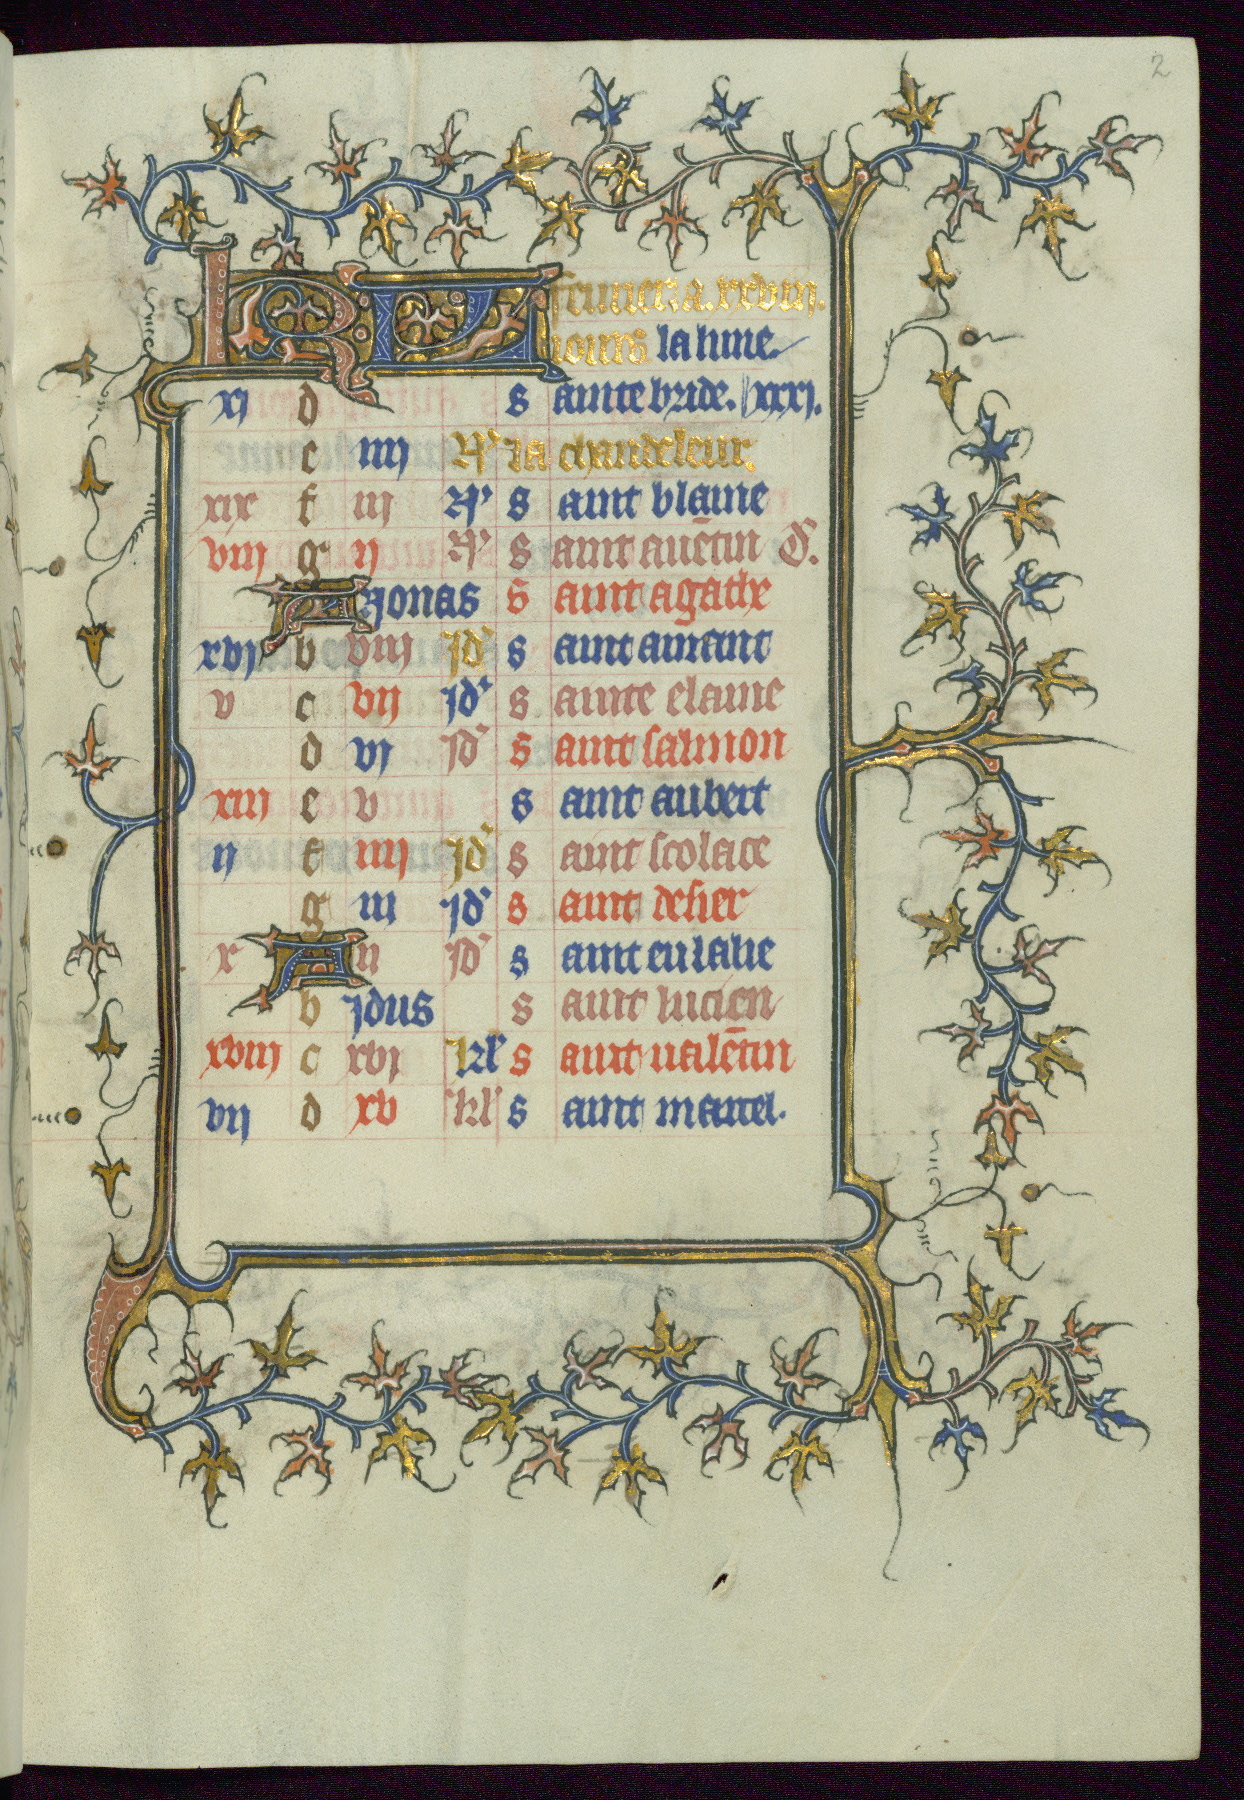 2
KL feurier a .xxviii.
iours la lune.
xi d s ainte bride. xxxi.
e iiii N' la chandeleur.
xix f iii N' s aint blaiue
viii g ii N' s aint auētin
A Nonas s aint agathe
xvi b viii Jd' s aint amant
v c vii Jd' s ainte elaine
d vi Jd' s aint salmon
xiii e v s aint aubert
ii f iiii Jd' s aint scolace
g iii Jd' s aint desier
x A ii Jd' s aint eulalie
b Jdus s aint lucien
xviii c xvi kl' s aint ualētin
vii d xv kl' s aint